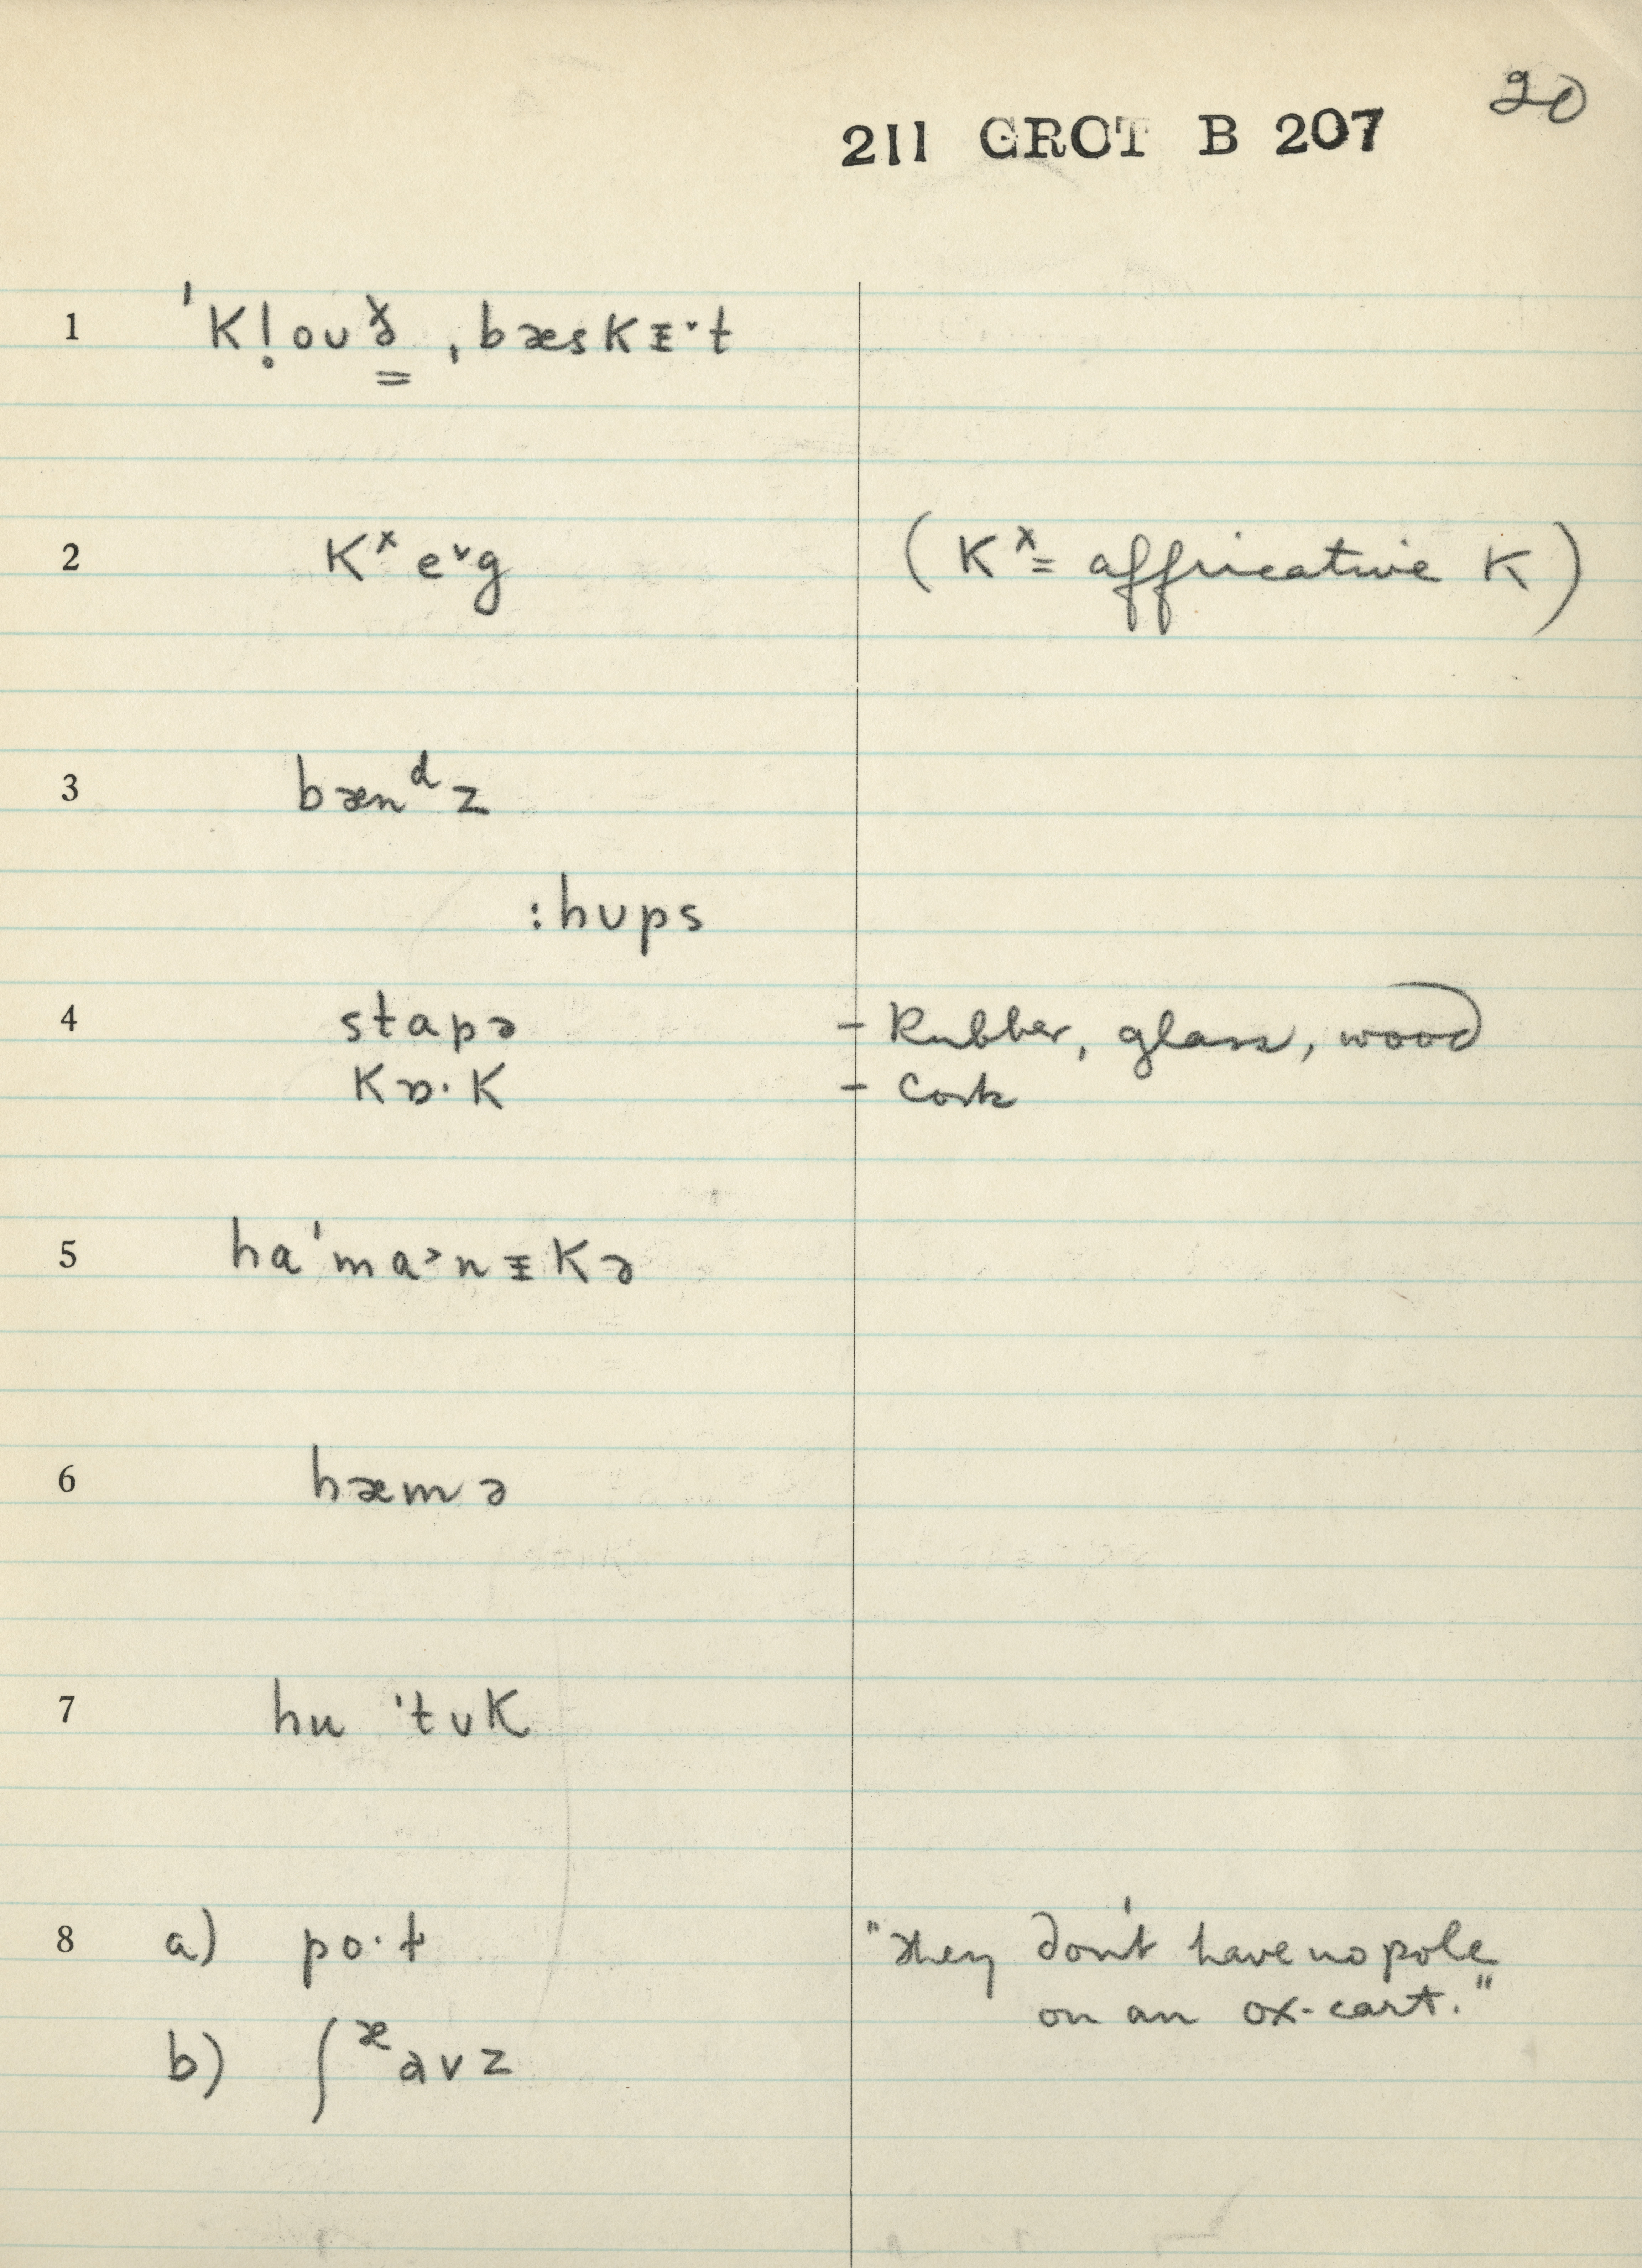 20
211 GROT B 207
1 ˈK!̣ouᵟ̳ ˌbæsKᵻ˅t
2 Kˣe˅g (Kˣ = affricative K)
3 bænᵈz
:hups
4 stapə – Rubber, glass, wood
Kɒ·K – Cork
5 haˈma˃nᵻKə
6 hæmə
7 hu ˈtʊK
8 a) po·ɫ "They don't have no pole
on an ox-cart."
b) ʃᵆavz